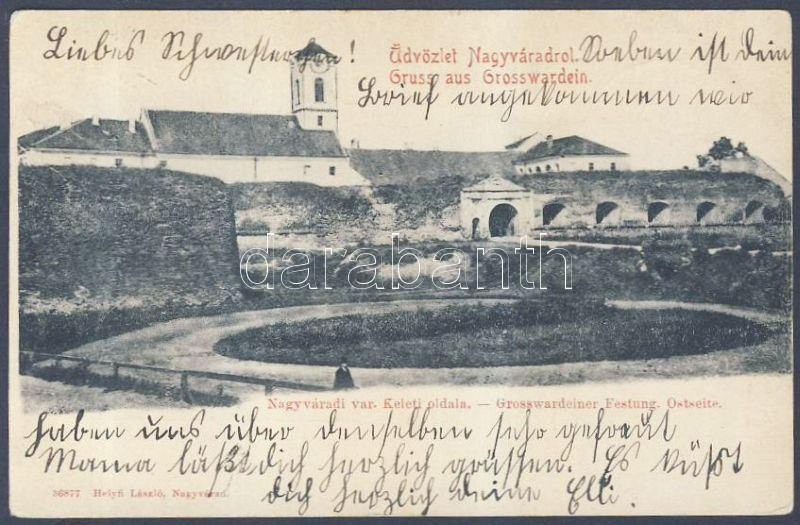 Liebes Schwesterchen!
Üdvözlet Nagyváradrol.
Gruss aus Grosswardein.
Soeben ist dein
Brief angekommen wir
darabanth
Nagyváradi var. Keleti oldala. — Grosswardeiner Festung. Ostseite.
haben uns über denselben sehr gefreut
Mama läßt dich herzlich grüssen. Es küßt
dich herzlich deine Elli.
36877 Helyfi László, Nagyvárad.